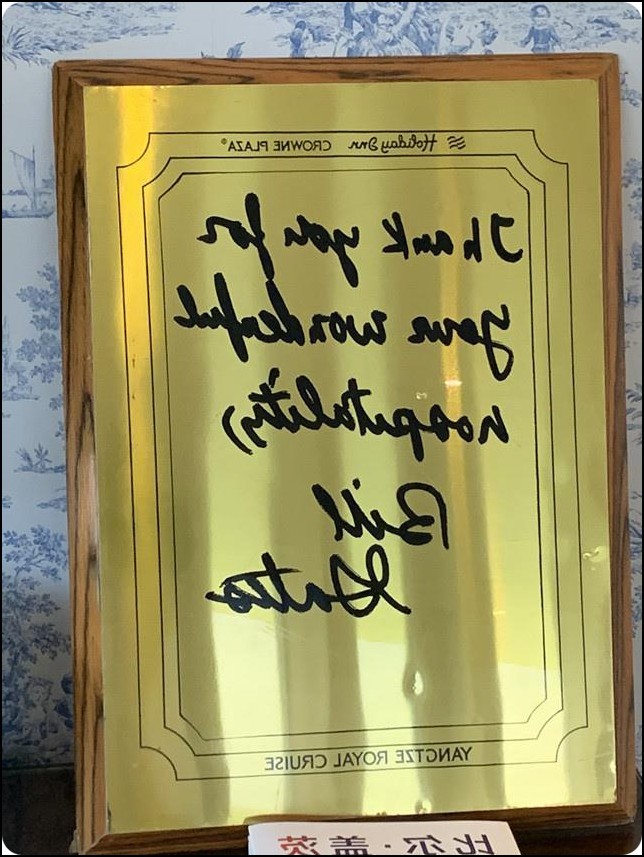 Holiday Inn CROWNE PLAZA®
Thank you for
your wonderful
hospitality,
Bill
Gates
YANGTZE ROYAL CRUISE
比尔·盖茨